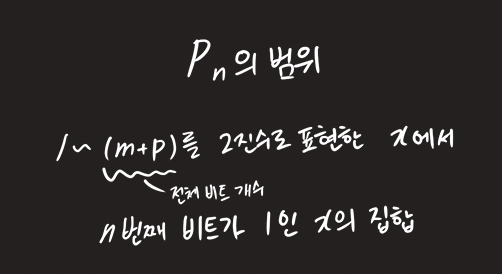 Pn의 범위
1~(m+p)를 2진수로 표현한 x에서
전체 비트 개수
n번째 비트가 1인 x의 집합